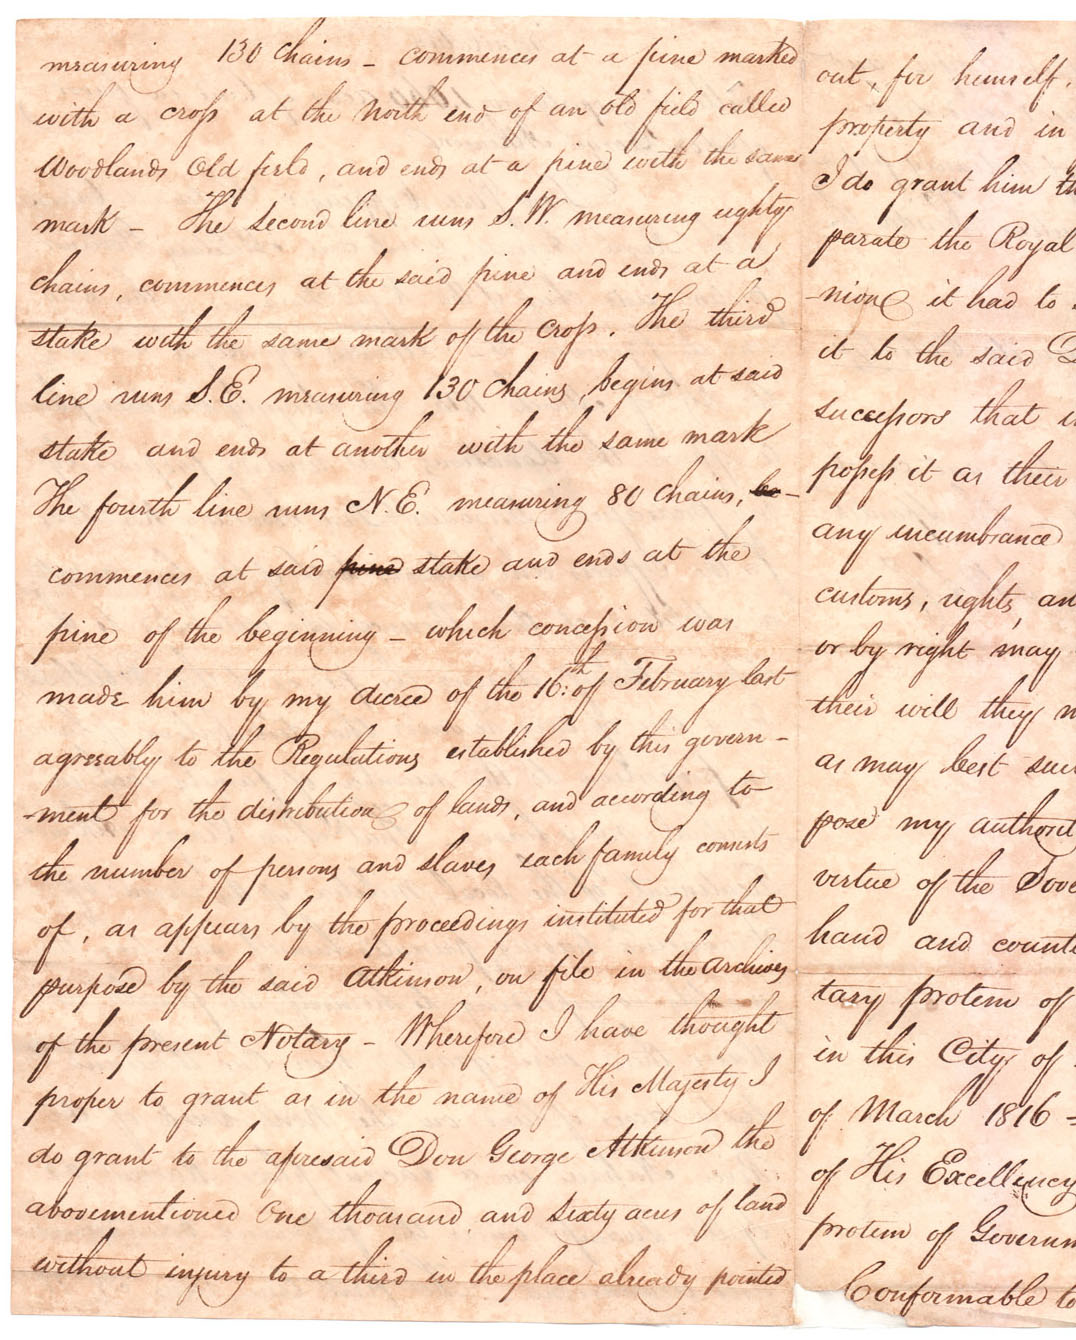 measuring 130 Chains - commences at a pine marked
with a cross at the North end of an old field called
Woodlands Old field, and ends at a pine with the same
mark - The second line runs S.W. measuring eighty
chains, commences at the said pine and ends at a
stake with the same mark of the Cross. The third
line runs S.E. measuring 130 Chains, begins at said
stake and ends at another with the same mark
The fourth line runs N.E. measuring 80 Chains, be-
commences at said pine stake and ends at the
pine of the beginning - which concession was
made him by my decree of the 16:th of February last
agreeably to the Regulations established by this govern-
-ment for the distribution of lands, and according to
the number of persons and slaves each family consists
of, as appears by the proceedings instituted for that
purpose by the said Atkinson, on file in the archives
of the present Notary - Wherefore I have thought
proper to grant as in the name of His Majesty I
do grant to the aforesaid Don George Atkinson the
abovementioned One thousand and Sixty acres of land
without injury to a third in the place already pointed
out, for himself,
property and in
I do grant him
parate the Royal
-nion it had to
it to the said
successors that
possess it as their
any incumbrance
customs, rights, an
or by right may
their will they
as may best sui
pose my authorit
virtue of the Sove
hand and counte
tary protem of
in this City of
of March 1816 =
of His Excellency
protem of Governm
Conformable to